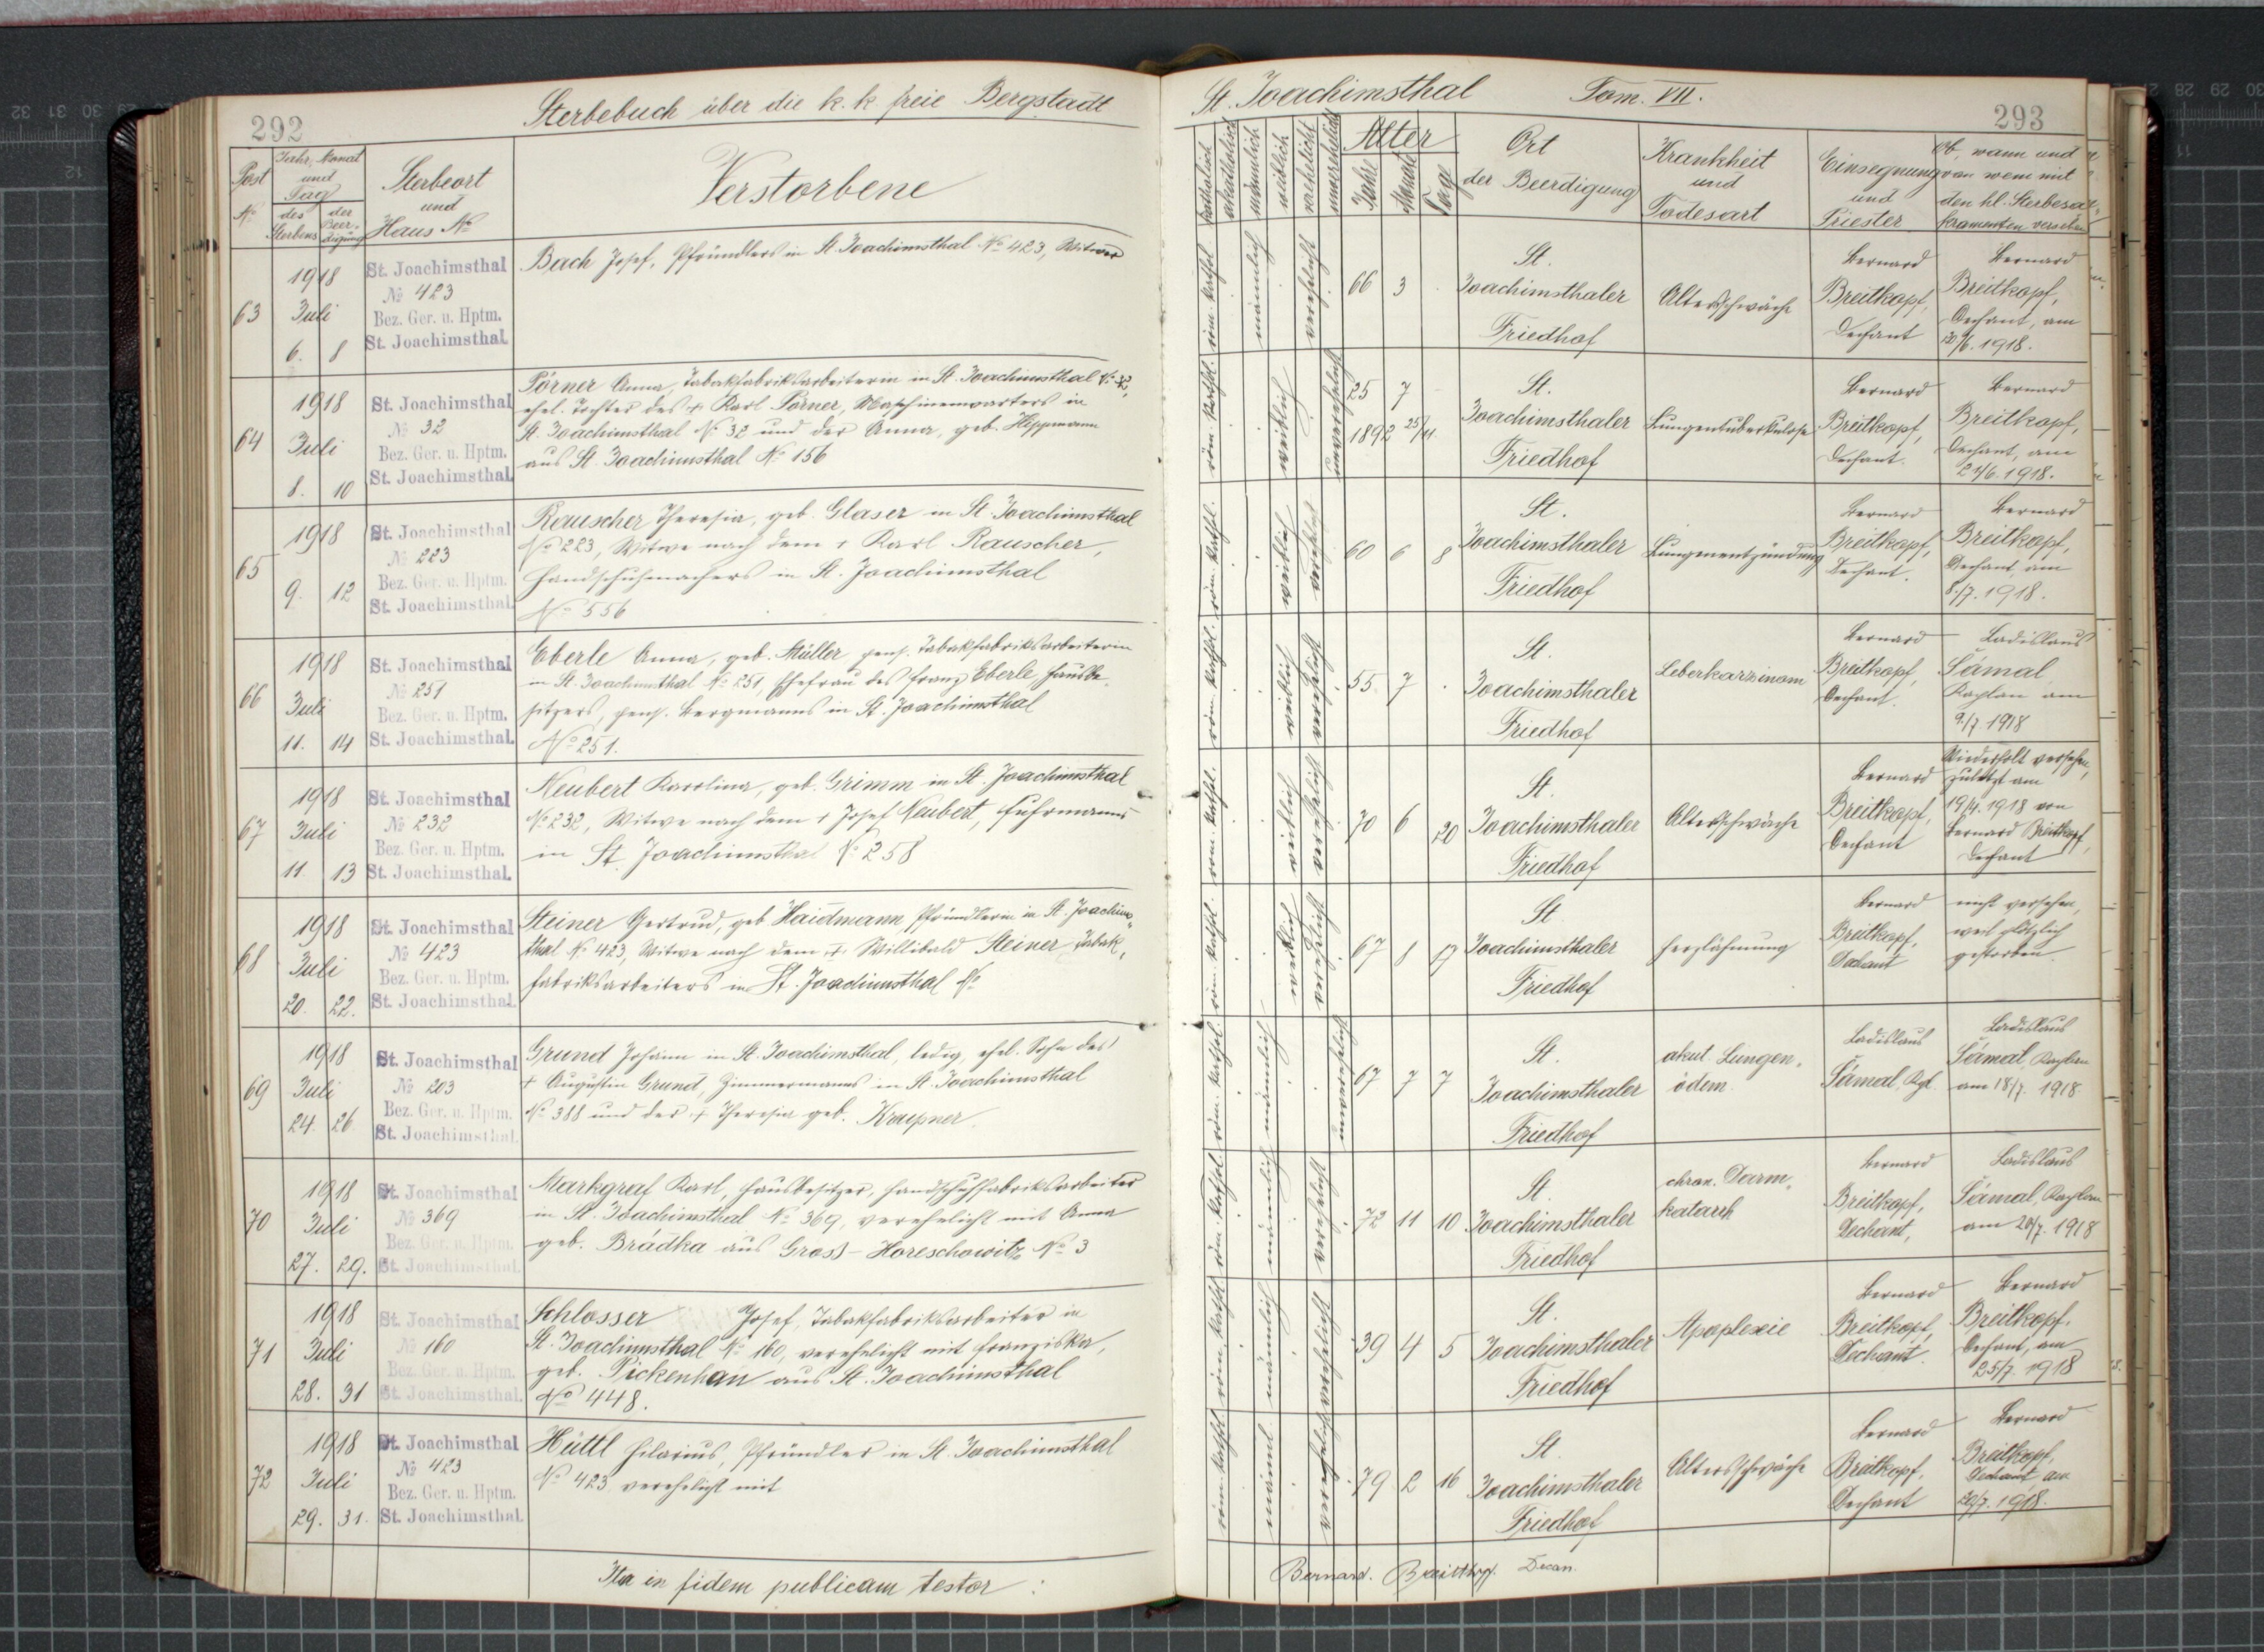 292
Sterbebuch über die k. k freie Bergstadt
Post
No
Jahr, Monat
und
Tag
des
Sterbens
der
Beer-
digung
Sterbeort
und
Haus No
Verstorbene
63
1918
Juli
6. 8
St. Joachimsthal
No 423
Bez. Ger. u. Hptm.
St. Joachimsthal.
Bach Josef, Pfründlers in St. Joachimsthal No 423, Witwer
64
1918
Juli
8. 10
St. Joachimsthal
No 32
Bez. Ger. u. Hptm.
St. Joachimsthal.
Pörner Anna, Tabakfabriksarbeiterin in St. Joachimsthal No 32,
ehel. Tochter des + Karl Pörner, Maschinenwarters in
St. Joachimsthal No 32 und der Anna, geb. Heppmann
aus St. Joachimsthal No 156
65
1918
9. 12
St. Joachimsthal
No 223
Bez. Ger. u. Hptm.
St. Joachimsthal.
Rauscher Theresia, geb. Glaser in St. Joachimsthal
No 223, Witwe nach dem + Karl Rauscher,
Handschuhmachers in St. Joachimsthal
No 556
66
1918
Juli
11. 14
St. Joachimsthal
No 251
Bez. Ger. u. Hptm.
St. Joachimsthal.
Eberle Anna, geb. Müller pens. Tabakfabriksarbeiterin
in St. Joachimsthal No 251, Ehefrau des Franz Eberle, Hausbe-
sitzers, pens. Bergmanns in St. Joachimsthal
No 251.
67
1918
Juli
11. 13
St. Joachimsthal
No 232
Bez. Ger. u. Hptm.
St. Joachimsthal.
Neubert Karolina, geb. Grimm in St. Joachimsthal
No 232, Witwe nach dem + Josef Neubert, Fuhrmanns
in St. Joachimsthal No 258
68
1918
Juli
20. 22.
St. Joachimsthal
No 423
Bez. Ger. u. Hptm.
St. Joachimsthal.
Steiner Gertrud, geb Haidmann Pfründlerin in St. Joachims-
thal No 423, Witwe nach dem + Willibald Steiner, Tabak-
fabriksarbeiters in St. Joachimsthal No
69
1918
Juli
24. 26
St. Joachimsthal
No 203
Bez. Ger. u. Hptm.
St. Joachimsthal.
Grund Johann in St. Joachimsthal, ledig, ehel. Sohn des
+ Augustin Grund, Zimmermanns in St. Joachimsthal
No 388 und der + Theresia geb. Kraupner
70
1918
Juli
27. 29.
St. Joachimsthal
No 369
Bez. Ger. u. Hptm.
St. Joachimsthal.
Markgraf Karl, Hausbesitzer, Handschuhfabriksarbeiter
in St. Joachimsthal No 369, verehelicht mit Anna
geb. Brádka aus Gross-Horeschowitz No 3
71
1918
Juli
28. 31
St. Joachimsthal
No 160
Bez. Ger. u. Hptm.
St. Joachimsthal.
Schlosser Josef, Tabakfabriksarbeiter in
St. Joachimsthal No 160, verehelicht mit Franziska,
geb. Pickenhan aus St. Joachimsthal
No 448.
72
1918
Juli
29. 31.
St. Joachimsthal
No 423
Bez. Ger. u. Hptm.
St. Joachimsthal.
Hüttl Hilarius, Pfründler in St. Joachimsthal
No 423 verehelicht mit
Ita in fidem publicam testor :
St. Joachimsthal Tom. VII.
293
katholisch
akatholisch
männlich
weiblich
verehelicht
unverehelicht
Alter
Jahr
Monat
Tag
Ort
der Beerdigung
Krankheit
und
Todesart
Einsegnung
und
Priester
Ob, wann und
von wem mit
den hl. Sterbesa-
kramenten versehen
röm. kathol. männlich verehelicht
66 3
St.
Joachimsthaler
Friedhof
Altersschwäche
Bernard
Breitkopf,
Dechant
Bernard
Breitkopf,
Dechant, am
/6. 1918.
röm. kathol. weiblich unverehelicht
25 7
1892 25/11
St.
Joachimsthaler
Friedhof
Lungentuberkulose
Bernard
Breitkopf,
Dechant.
Bernard
Breitkopf,
Dechant, am
24/6. 1918.
röm. kathol. weiblich verehelicht
60 6 8
St.
Joachimsthaler
Friedhof
Lungenentzündung
Bernard
Breitkopf,
Dechant.
Bernard
Breitkopf,
Dechant am
8./7. 1918.
röm. kathol. weiblich verehelicht
55 7
St.
Joachimsthaler
Friedhof
Leberkarzinom
Bernard
Breitkopf,
Dechant.
Ladislaus
Šámal,
Kaplan am
9./7. 1918
röm. kathol. weiblich verehelicht
70 6 20
St.
Joachimsthaler
Friedhof
Altersschwäche
Bernard
Breitkopf,
Dechant
Wiederholt versehen,
zuletzt am
19/4. 1918 von
Bernard Breitkopf,
Dechant
röm. kathol. weiblich verehelicht
67 8 17
St
Joachimsthaler
Friedhof
Herzlähmung
Bernard
Breitkopf,
Dechant
nicht versehen,
weil plötzlich
gestorben.
röm. kathol. männlich unverehelicht
67 7 7
St.
Joachimsthaler
Friedhof
akut. Lungen-
ödem.
Ladislaus
Šámal, Kpl.
Ladislaus
Šámal, Kaplan
am 18/7. 1918.
röm. kathol. männlich verehelicht
72 11 10
St.
Joachimsthaler
Friedhof
chron. Darm-
katarrh
Bernard
Breitkopf,
Dechant,
Ladislaus
Šámal, Kaplan
am 20/7. 1918
röm. kathol. männlich verehelicht
39 4 5
St.
Joachimsthaler
Friedhof
Apoplexie
Bernard
Breitkopf,
Dechant.
Bernard
Breitkopf,
Dechant, am
25/7. 1918
röm. kathol. männl. verehelicht
79 2 16
St.
Joachimsthaler
Friedhof
Altersschwäche
Bernard
Breitkopf,
Dechant
Bernard
Breitkopf,
Dechant am
20/7. 1918.
Bernard. Breitkopf. Decan.